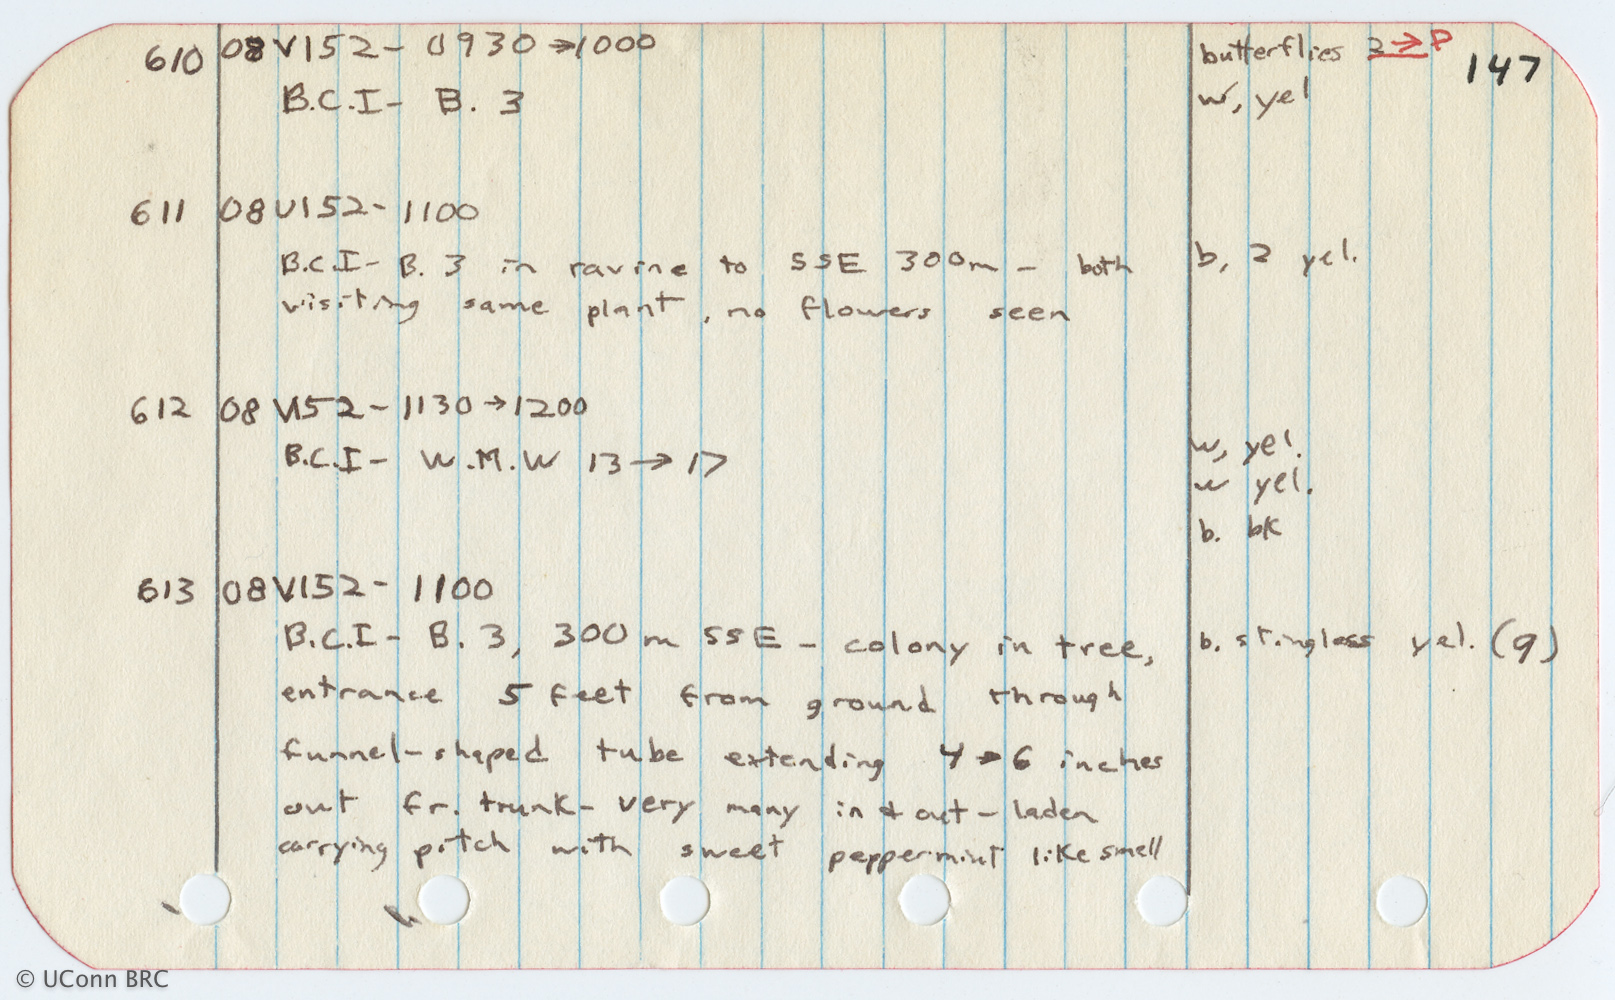 147
610 08VI52- 0930→1000 butterflies 2→P
B.C.I- B. 3 w, yel
611 08VI52- 1100
B.C.I- B. 3 in ravine to SSE 300m - both b, 2 yel.
visiting same plant, no flowers seen
612 08VI52- 1130→1200
B.C.I- W.M.W 13→17 w, yel.
w yel.
b. bk
613 08VI52- 1100
B.C.I- B. 3, 300 m SSE - colony in tree, b. stingless yel. (9)
entrance 5 feet from ground through
funnel-shaped tube extending 4→6 inches
out fr. trunk- very many in & out - laden
carrying pitch with sweet peppermint like smell
© UConn BRC